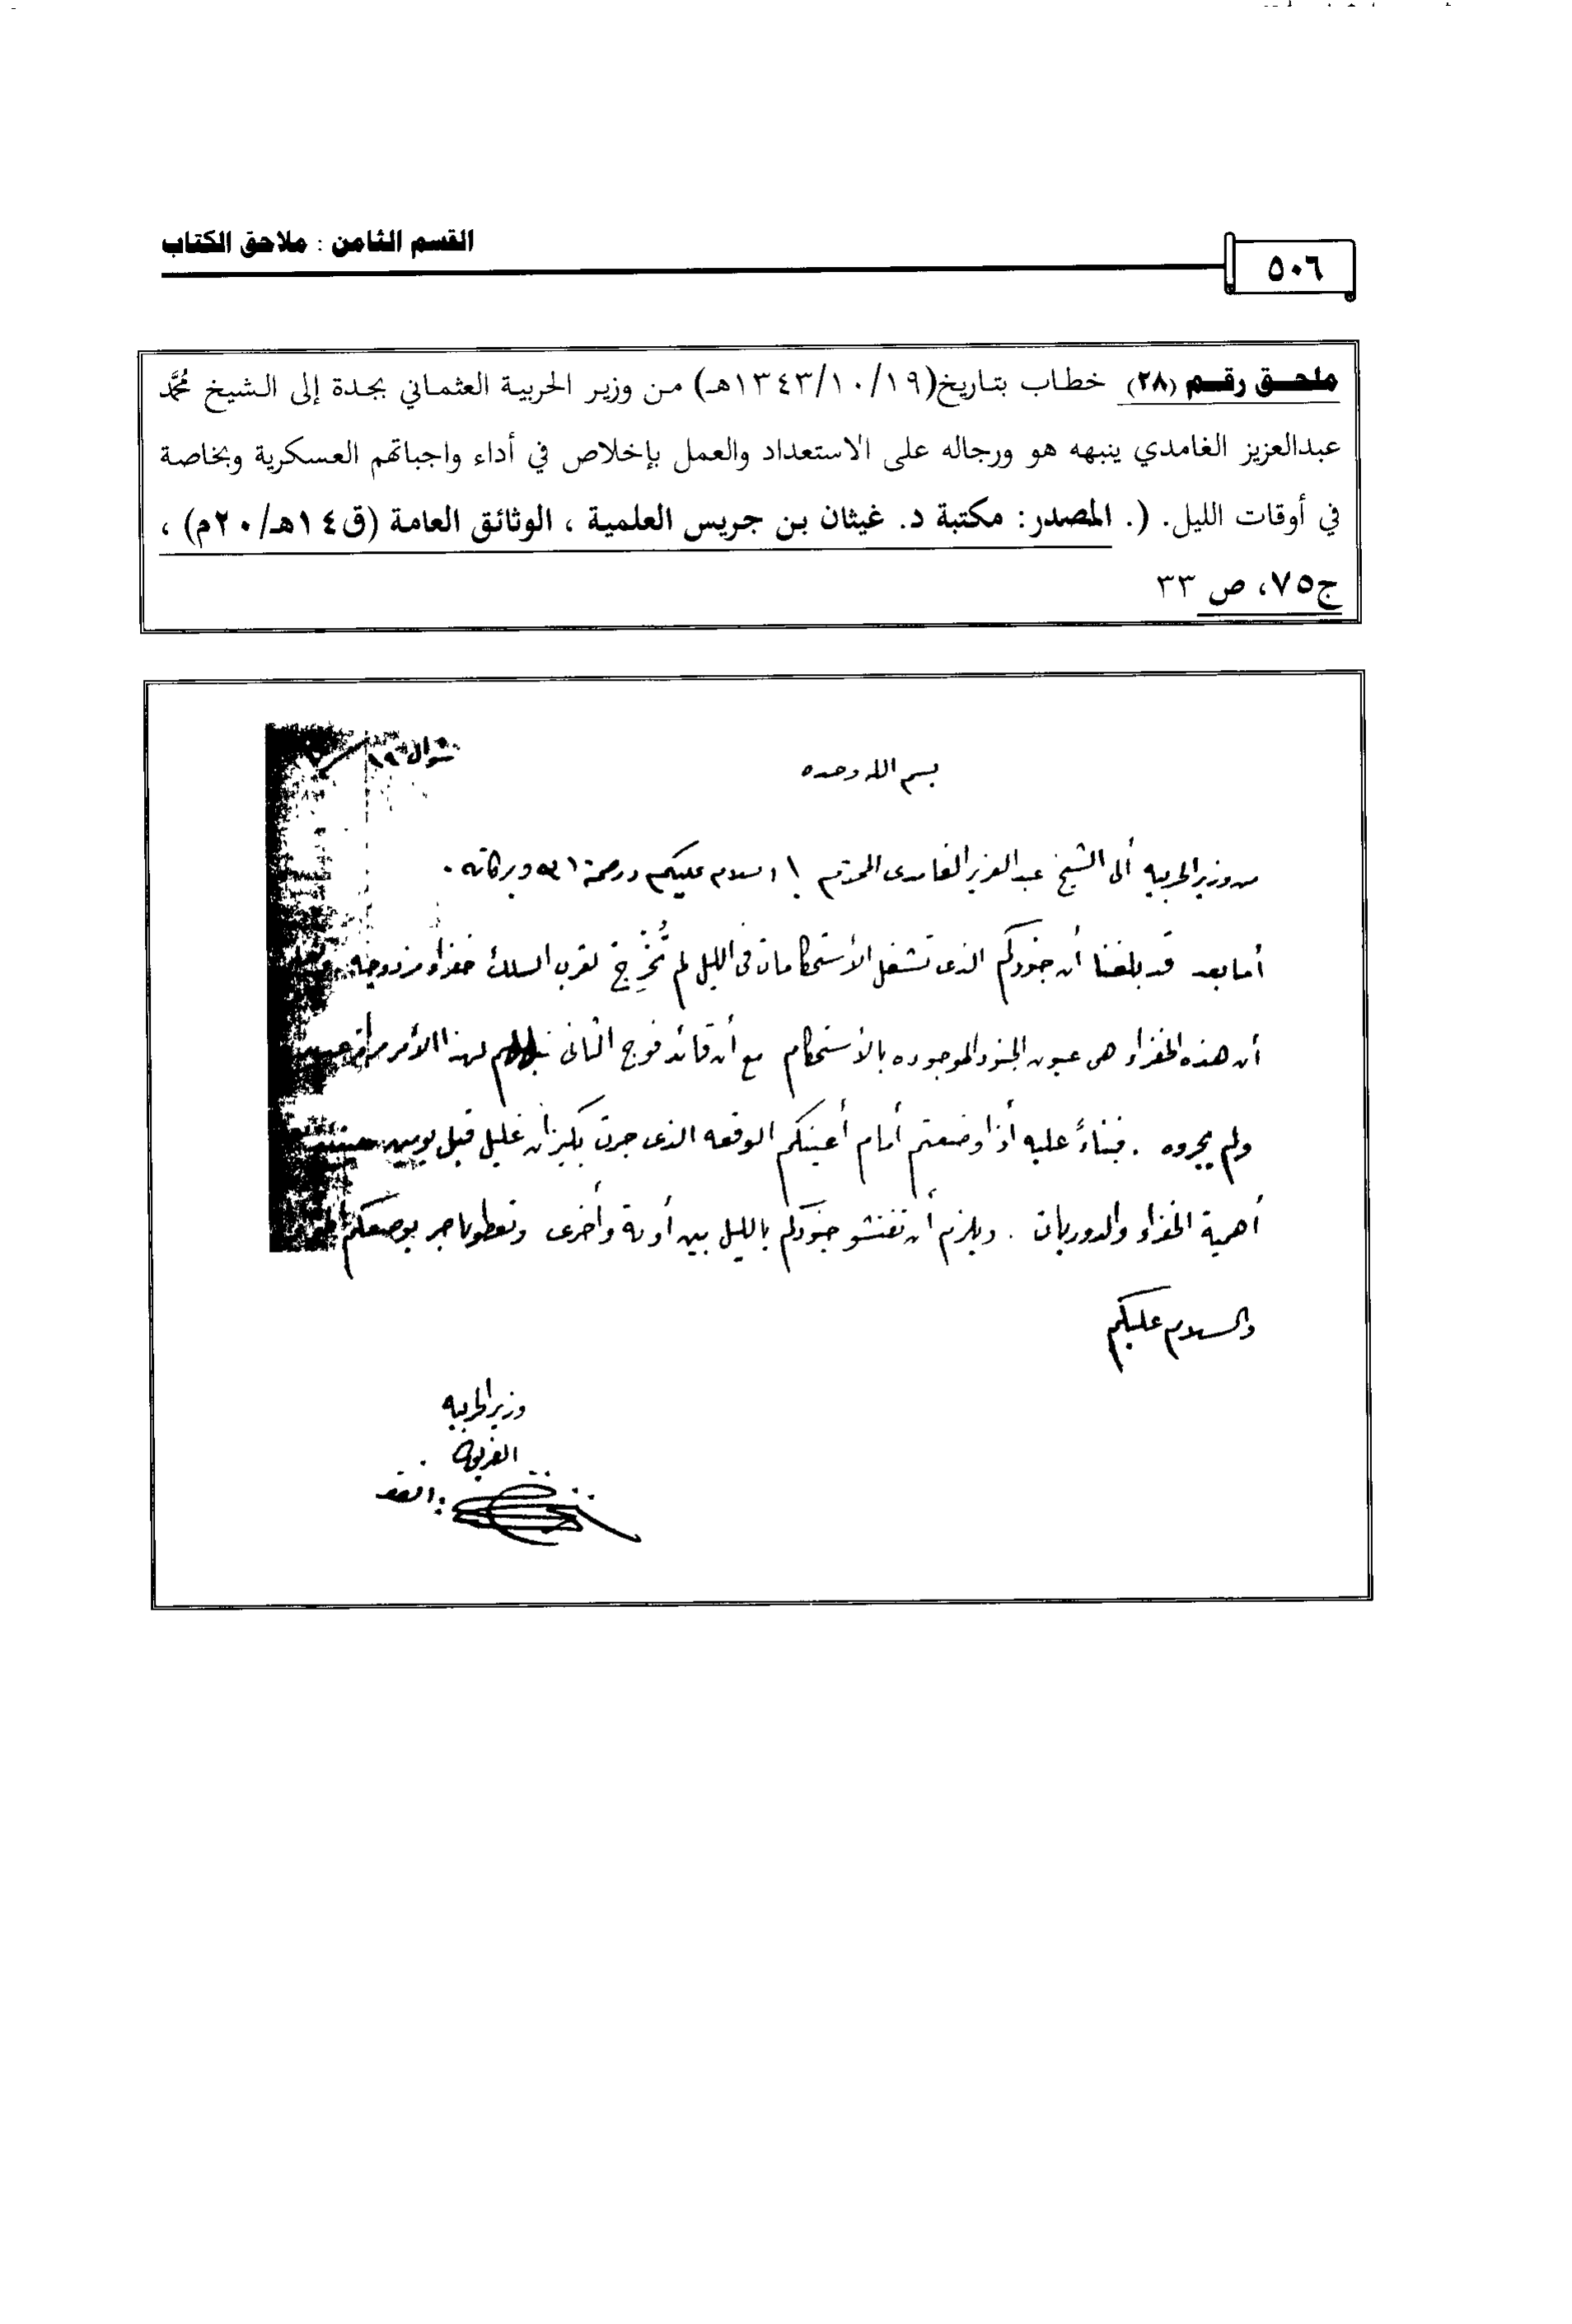 القسم الثامن : ملاحق الكتاب
٥٠٦
ملحق رقم (٢٨) خطاب بتاريخ(١٣٤٣/١٠/١٩هـ) من وزير الحربية العثماني بجدة إلى الشيخ مُحمَّد
عبدالعزيز الغامدي ينبهه هو ورجاله على الاستعداد والعمل بإخلاص في أداء واجباتهم العسكرية وبخاصة
في أوقات الليل. (. المصدر: مكتبة د. غيثان بن جريس العلمية ، الوثائق العامة (ق١٤هـ/٢٠م) ،
ج٧٥، ص ٣٣
شوال ١٩
بسم الله وحده
من وزير الحربيه ألى الشيخ عبد العزيز الغامدى المحترم السلام عليكم ورحمة الله وبركاته .
أما بعد قد بلغنا أن جنودكم الذى تشغل الأستحكامات فى الليل لم تُخْرِج لقرب السلك خفراء مزدوجه
أن هذه الخفراء هى عيون الجنود الموجوده بالأستحكام مع أن قائد فوج الثانى لهذا الأمر
ولم يجروه . فبناءً عليه أذا وضعتم أمام أعينكم الوقعه الذى جرت قبل يومين
أهمية الخفراء والدوريات . ويلزم أن تفتشو جنودكم بالليل بين أونة وأخرى
والسلام عليكم
وزير الحربيه
الفريق